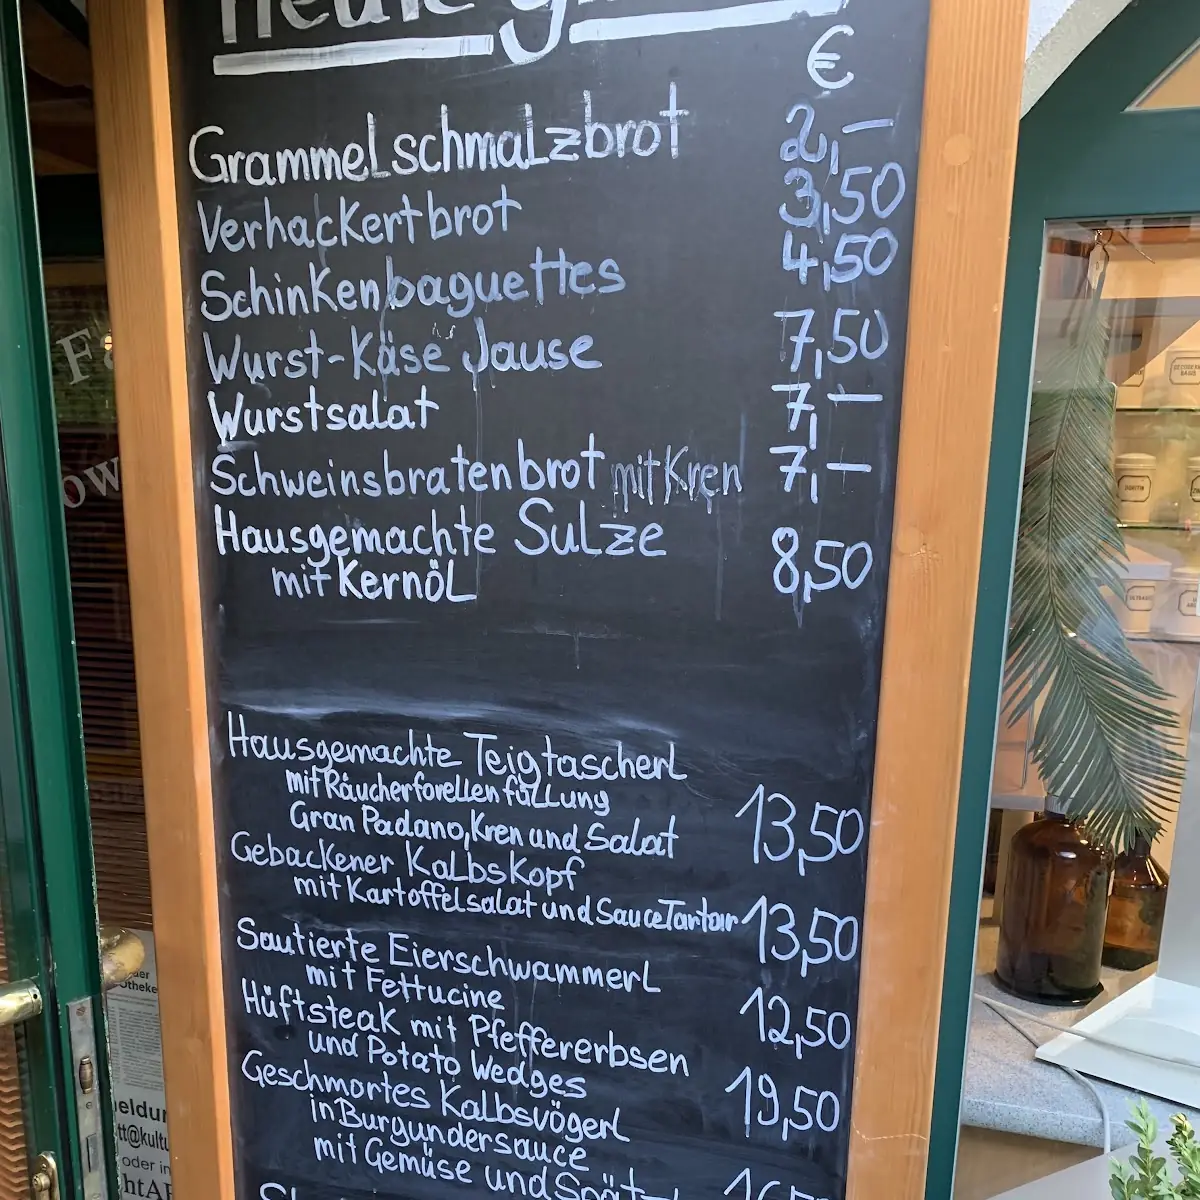 Heute
€
Grammelschmalzbrot 2,—
Verhackertbrot 3,50
Schinkenbaguettes 4,50
Wurst-Käse Jause 7,50
Wurstsalat 7,—
Schweinsbratenbrot mit Kren 7,—
Hausgemachte Sulze
mit Kernöl 8,50
Hausgemachte Teigtascherl
mit Räucherforellenfüllung
Gran Padano, Kren und Salat 13,50
Gebackener Kalbskopf
mit Kartoffelsalat und Sauce Tartar 13,50
Sautierte Eierschwammerl
mit Fettucine 12,50
Hüftsteak mit Pfeffererbsen
und Potato Wedges 19,50
Geschmortes Kalbsvögerl
in Burgundersauce
mit Gemüse und
oder in